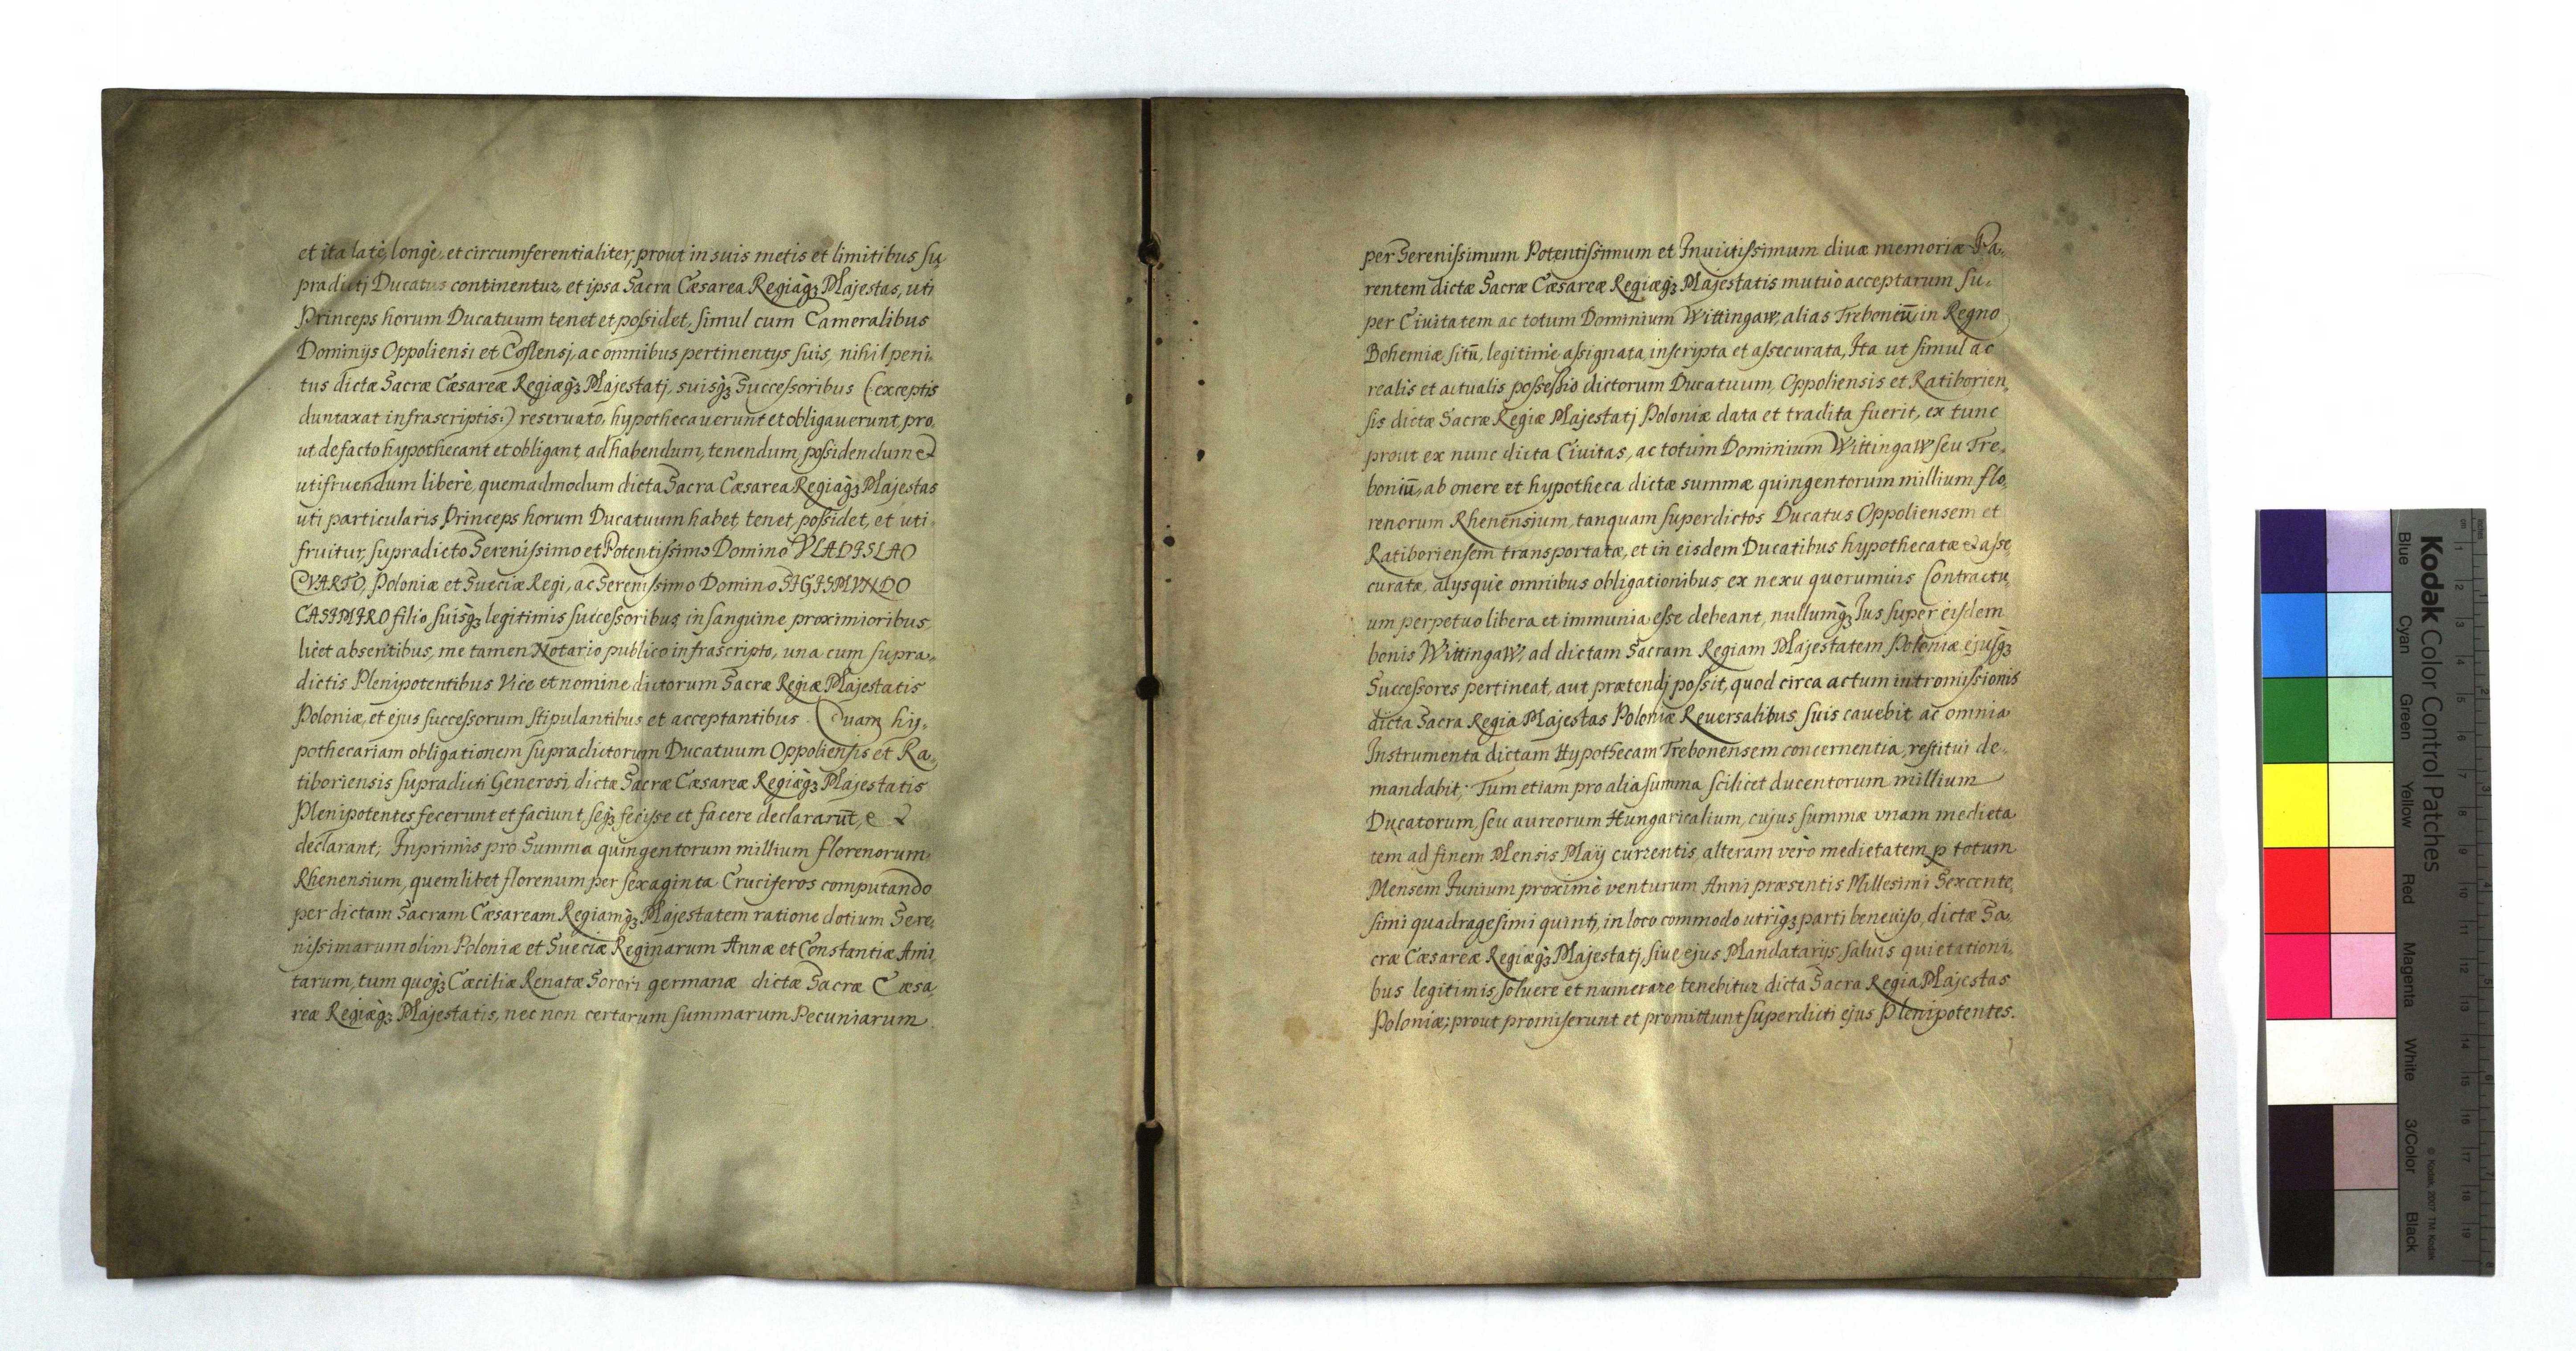 et ita latè, longè, et circumferentialiter, prout in suis metis et limitibus su
pradicti Ducatus continentur, et ipsa Sacra Cæsarea Regiaq́ꝫ Majestas, uti
Princeps horum Ducatuum tenet et poſsidet, simul cum Cameralibus
Dominijs Oppoliensi et Coſlensi, ac omnibus pertinentijs suis, nihil peni,
tus dictæ Sacræ Cæsareæ Regiæq́ꝫ Majestati, suisq́ꝫ Successoribus (exceptis
duntaxat infrascriptis:) reseruato, hypothecauerunt et obligauerunt, pro,
ut de facto hypothecant et obligant, ad habendum, tenendum, poſsidendum et
utifruendum liberè, quemadmodum dicta Sacra Cæsarea Regiaq́ꝫ Majestas
uti particularis Princeps horum Ducatuum habet, tenet, poſsidet, et uti,
fruitur, supradicto Sereniſsimo et Potentiſsimo Domino VLADISLAO
QVARTO, Poloniæ et Sueciæ Regi, ac Sereniſsimo Domino SIGISMVNDO
CASIMIRO filio suisq́ꝫ legitimis successoribus, in sanguine proximioribus,
licet absentibus, me tamen Notario publico infrascripto, una cum supra,
dictis Plenipotentibus Vice et nomine dictorum Sacræ Regiæ Majestatis
Poloniæ, et ejus successorum stipulantibus et acceptantibus. Quam hy,
pothecariam obligationem supradictorum Ducatuum Oppoliensis et Ra,
tiboriensis supradicti Generosi, dictæ Sacræ Cæsareæ Regiæq́ꝫ Majestatis
Plenipotentes fecerunt et faciunt, seq́ꝫ feciſse et facere declararūt, et
declarant; Inprimis pro Summa quingentorum millium florenorum
Rhenensium, quemlibet florenum per sexaginta Cruciferos computando
per dictam Sacram Cæsaream Regiamq́ꝫ Majestatem ratione dotium Sere,
niſsimarum olim Poloniæ et Sueciæ Reginarum Annæ et Constantiæ Ami,
tarum, tum quoq́ꝫ Cæciliæ Renatæ Sorori germanæ dictæ Sacræ Cæsa,
reæ Regiæq́ꝫ Majestatis, nec non certarum summarum Pecuniarum
per Sereniſsimum Potentiſsimum et Inuictiſsimum diuæ memoriæ Pa,
rentem dictæ Sacræ Cæsareæ Regiæq́ꝫ Majestatis mutuò acceptarum su,
per Ciuitatem ac totum Dominium Wittingaw, alias Treboniū, in Regno
Bohemiæ sitū, legitimè aſsignata, inscripta et aſsecurata, Ita ut simul ac
realis et actualis poſseſsio dictorum Ducatuum, Oppoliensis et Ratiborien,
sis dictæ Sacræ Regiæ Majestati Poloniæ data et tradita fuerit, ex tunc
prout ex nunc dicta Ciuitas, ac totum Dominium Wittingaw seu Tre,
boniū, ab onere et hypotheca dictæ summæ quingentorum millium flo,
renorum Rhenensium, tanquam superdictos Ducatus Oppoliensem et
Ratiboriensem transportatæ, et in eisdem Ducatibus hypothecatæ et aſse,
curatæ, alijsque omnibus obligationibus, ex nexu quorumuis Contractu,
um perpetuo libera et immunia eſse debeant, nullumq́ꝫ Ius super eisdem
bonis Wittingaw, ad dictam Sacram Regiam Majestatem Poloniæ ejusq́ꝫ
Successores pertineat, aut prætendi poſsit, quod circa actum intromiſsionis
dicta Sacra Regia Majestas Poloniæ Reuersalibus suis cauebit, ac omnia
Instrumenta dictam Hypothecam Trebonensem concernentia, restitui de,
mandabit; Tum etiam pro alia summa scilicet ducentorum millium
Ducatorum, seu aureorum Hungaricalium, cujus summæ vnam medieta
tem ad finem Mensis Maij currentis, alteram verò medietatem p totum
Mensem Junium proximè venturum Anni præsentis Millesimi Sexcente,
simi quadragesimi quinti, in loco commodo utriq́ꝫ parti beneuiso, dictæ Sa,
cræ Cæsareæ Regiæq́ꝫ Majestati, siue ejus Mandatarijs, saluis quietationi,
bus legitimis, soluere et numerare tenebitur dicta Sacra Regia Majestas
Poloniæ; prout promiserunt et promittunt superdicti ejus Plenipotentes.
Kodak Color Control Patches
Blue Cyan Green Yellow Red Magenta White 3/Color Black
© Kodak, 2007 TM: Kodak